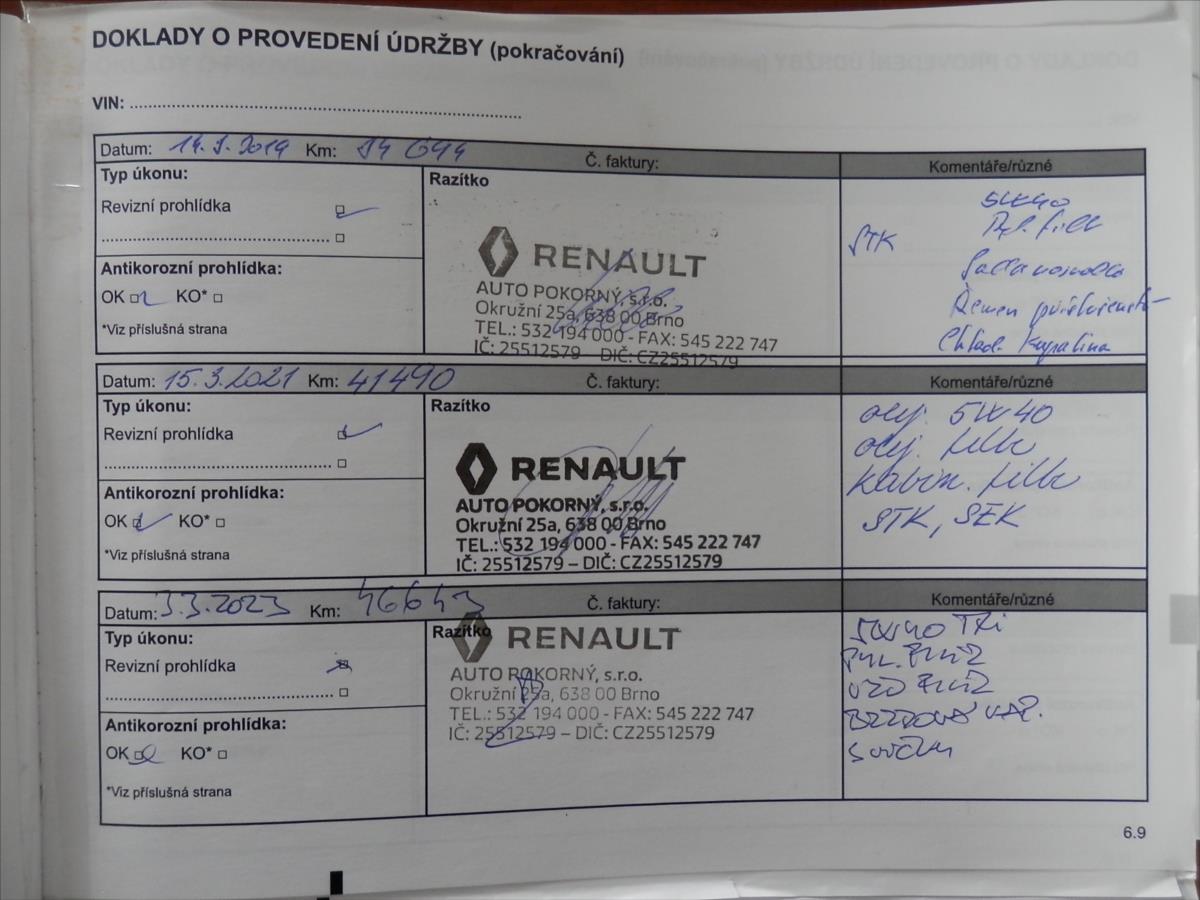 DOKLADY O PROVEDENÍ ÚDRŽBY (pokračování)
VIN:
Datum: 14.3.2019 Km: Č. faktury: Komentáře/různé
Typ úkonu: Razítko
Revizní prohlídka
Antikorozní prohlídka:
OK KO*
*Viz příslušná strana
RENAULT
AUTO POKORNÝ, s.r.o.
Okružní 25a, 638 00 Brno
TEL.: 532 194 000 - FAX: 545 222 747
IČ: 25512579 – DIČ: CZ25512579
5W40
STK
Chlad. kapalina
Datum: 15.3.2021 Km: 41490 Č. faktury: Komentáře/různé
Typ úkonu: Razítko
Revizní prohlídka
Antikorozní prohlídka:
OK KO*
*Viz příslušná strana
RENAULT
AUTO POKORNÝ, s.r.o.
Okružní 25a, 638 00 Brno
TEL.: 532 194 000 - FAX: 545 222 747
IČ: 25512579 – DIČ: CZ25512579
olej 5W40
olej. filtr
Kabin. filtr
STK, SEK
Datum: 3.3.2023 Km: 46643 Č. faktury: Komentáře/různé
Typ úkonu: Razítko
Revizní prohlídka
Antikorozní prohlídka:
OK KO*
*Viz příslušná strana
RENAULT
AUTO POKORNÝ, s.r.o.
Okružní 25a, 638 00 Brno
TEL.: 532 194 000 - FAX: 545 222 747
IČ: 25512579 – DIČ: CZ25512579
5W40
BRZDOVÁ KAP.
SVÍČKY
6.9